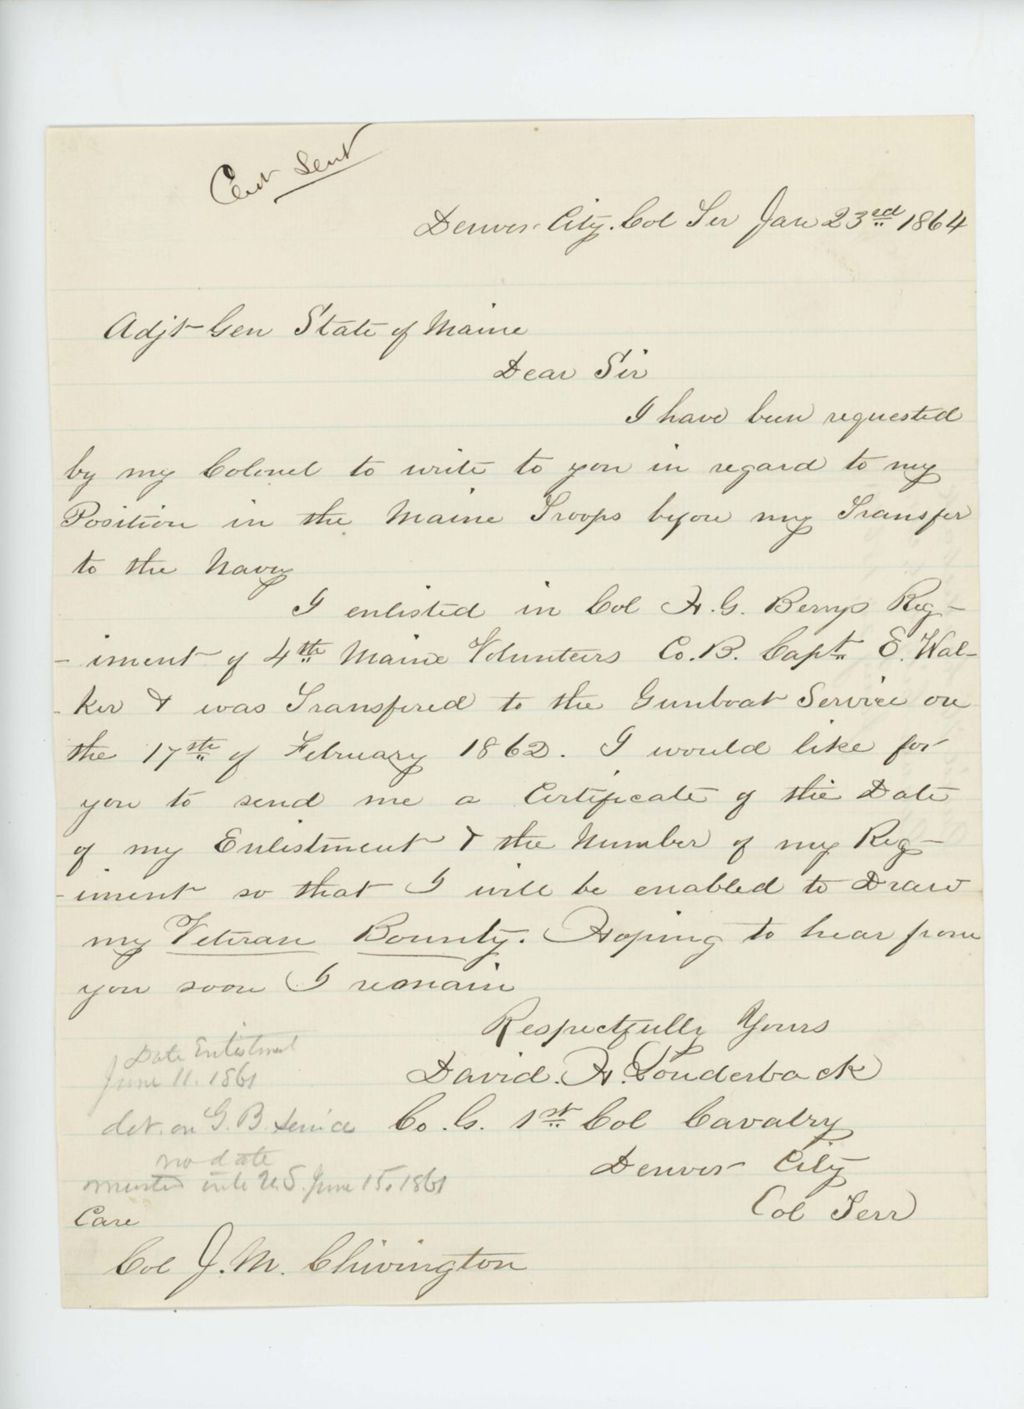 Cert Sent
Denver City. Col Ter Jan 23ed 1864
Adjt Gen State of Maine
Dear Sir
I have been requested
by my Colonel to write to you in regard to my
Position in the Maine Troops before my Transfer
to the Navy
I enlisted in Col H. G. Berrys Reg-
-iment of 4th Maine Volunteers Co. B. Capt. E. Wal-
-ker & was Transfered to the Gunboat Service on
the 17th of February 1862. I would like for
you to send me a Certificate of the Date
of my Enlistment & the Number of my Reg-
-iment so that I will be enabled to Draw
my Veteran Bounty. Hoping to hear from
you soon I remain
Respectfully Yours
David. H. Louderback
Co. G. 1st Col Cavalry
Denver City
Col Terr
Date Enlistment
June 11. 1861
det. on G. B. Service
no date
mustered into U.S. June 15. 1861
Care
Col J. M. Chivington